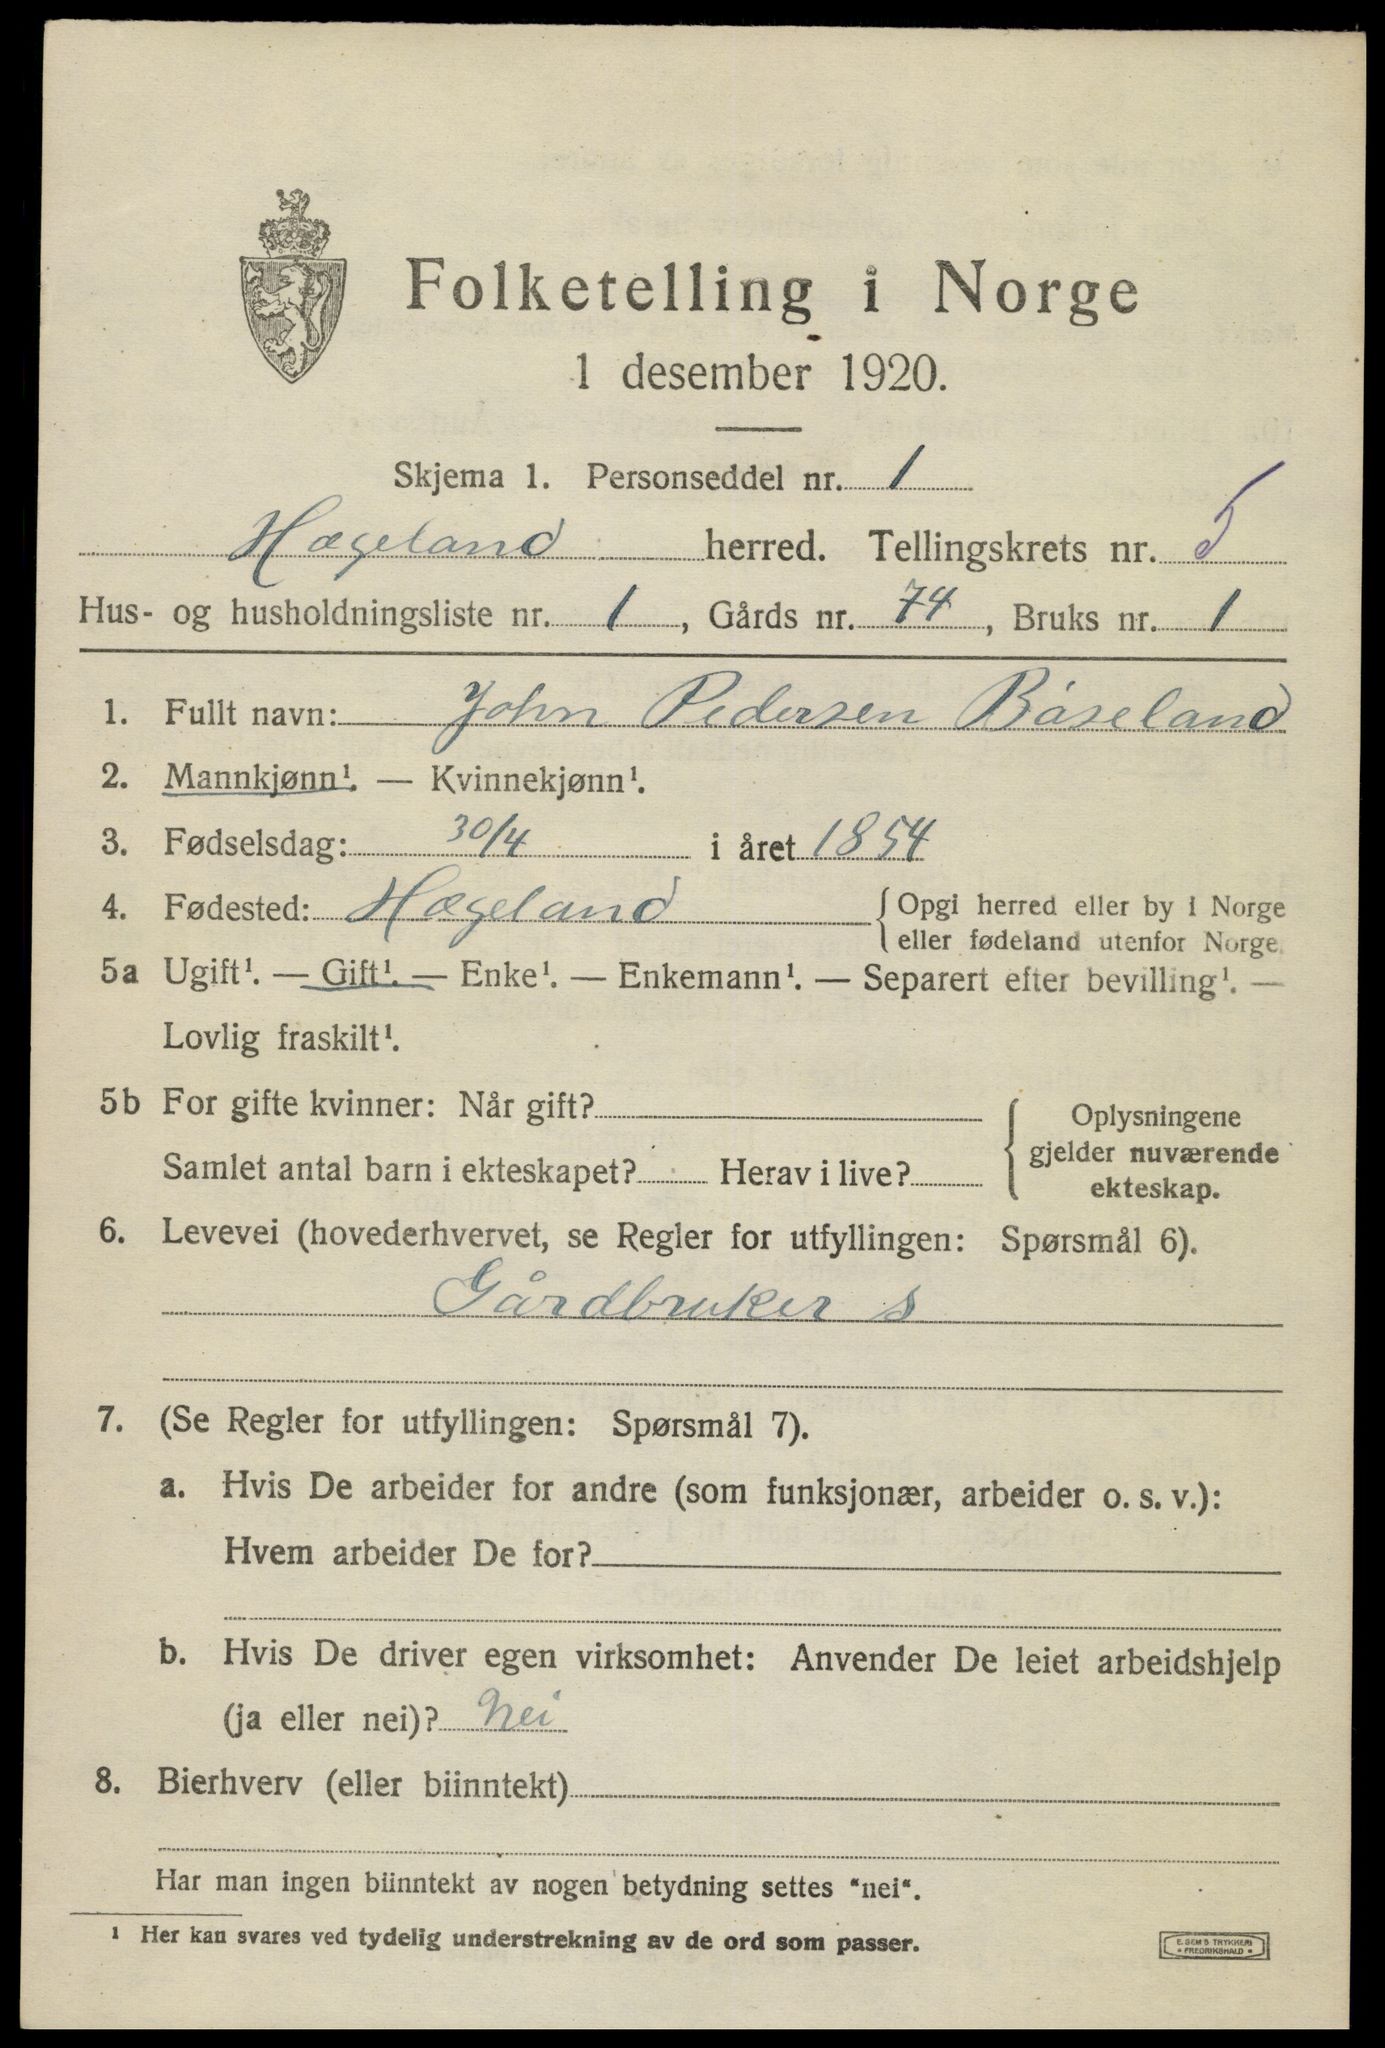 Folketelling i Norge
1 desember 1920.
Skjema 1. Personseddel nr. 1
Hægeland herred. Tellingskrets nr. 5
Hus- og husholdningsliste nr. 1, Gårds nr. 74, Bruks nr. 1
1. Fullt navn: John Pedersen Båseland
2. Mannkjønn¹. — Kvinnekjønn¹.
3. Fødselsdag: 30/4 i året 1854
4. Fødested: Hægeland { Opgi herred eller by i Norge
eller fødeland utenfor Norge.
5a Ugift¹. — Gift¹. — Enke¹. — Enkemann¹. — Separert efter bevilling¹. —
Lovlig fraskilt¹.
5b For gifte kvinner: Når gift?
Samlet antal barn i ekteskapet? Herav i live?
{ Oplysningene
gjelder nuværende
ekteskap.
6. Levevei (hovederhvervet, se Regler for utfyllingen: Spørsmål 6).
Gårdbruker s
7. (Se Regler for utfyllingen: Spørsmål 7).
a. Hvis De arbeider for andre (som funksjonær, arbeider o. s. v.):
Hvem arbeider De for?
b. Hvis De driver egen virksomhet: Anvender De leiet arbeidshjelp
(ja eller nei)? Nei
8. Bierhverv (eller biinntekt)
Har man ingen biinntekt av nogen betydning settes "nei".
¹ Her kan svares ved tydelig understrekning av de ord som passer.
E. SEM'S TRYKKERI
• FREDRIKSHALD •